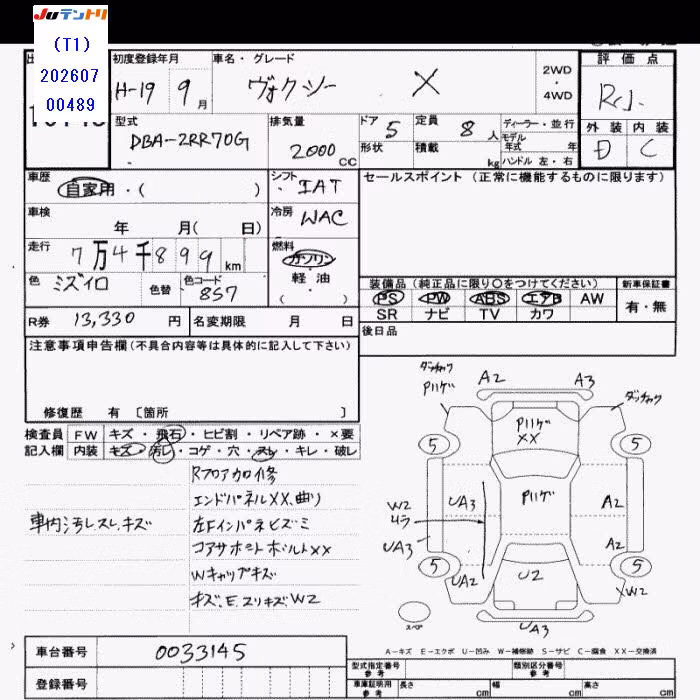 JUテントリ
(T1)
202607
00489
初度登録年月
H-19 9月
車名・グレード
ヴォクシー X
2WD
・
4WD
評価点
RJ.
外装 内装
D C
型式
DBA-ZRR70G
排気量
2000 CC
ドア 5
形状
定員 8人
積載 kg
ディーラー・並行
モデル
年式 年
ハンドル 左・右
車歴
自家用・( )
シフト
IAT
車検
年 月( 日)
冷房
WAC
走行
7万4千899km
燃料
ガソリン
軽・油
( )
色
ミズイロ
色替
色コード
8S7
R券 13,330 円
名変期限 月 日
セールスポイント (正常に機能するものに限ります)
装備品 (純正品に限り○をつけてください)
新車保証書
PS PW ABS エアB AW
SR ナビ TV カワ
有・無
後日品
注意事項申告欄(不具合内容等は具体的に記入して下さい)
修復歴 有 〔箇所 〕
検査員
記入欄
FW キズ・飛石・ヒビ割・リペア跡・×要
内装 キズ・汚レ・コゲ・穴・スレ・キレ・破レ
車内汚レスレキズ
Rフロアカロ修
エンドパネルXX、曲り
左Fインパネヒズミ
コアサポートボルトXX
Wキャップキズ
キズ、E、スリキズ、W2
ダッチャク
Pハゲ
A2
A3
ダッチャク
Pハゲ
XX
5
5
Pハゲ
UA3
A2
W2
ムラ
UA3
A2
5
5
UA2
U2
XW2
スペア
UA3
A-キズ E-エクボ U-凹み W-補修跡 S-サビ C-腐食 XX-交換済
車台番号 0033145
登録番号
型式指定番号
参考
類別区分番号
参考
車庫証明用
参考
長さ cm
幅 cm
高さ cm